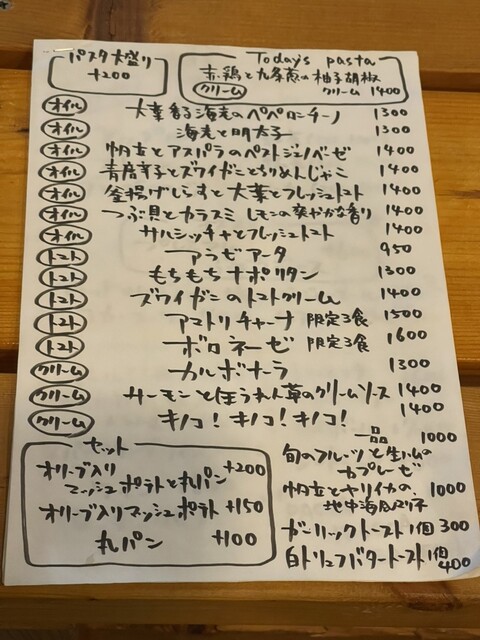 パスタ大盛り
+200
Today's pasta
赤鶏と九条葱の柚子胡椒
クリーム クリーム 1400
オイル 大葉香る海老のペペロンチーノ 1300
オイル 海老と明太子 1300
オイル 帆立とアスパラのペストジェノベーゼ 1400
オイル 青唐辛子とズワイガニとちりめんじゃこ 1400
オイル 釜揚げしらすと大葉とフレッシュトマト 1400
オイル つぶ貝とカラスミ レモンの爽やかな香り 1400
オイル サルシッチャとフレッシュトマト 1400
トマト アラビアータ 950
トマト もちもちナポリタン 1300
トマト ズワイガニのトマトクリーム 1400
トマト アマトリチャーナ 限定3食 1500
トマト ボロネーゼ 限定3食 1600
クリーム カルボナーラ 1300
クリーム サーモンとほうれん草のクリームソース 1400
クリーム キノコ!キノコ!キノコ! 1400
セット
オリーブ入り
マッシュポテトと丸パン +200
オリーブ入りマッシュポテト +150
丸パン +100
一品
旬のフルーツと生ハムの 1000
カプレーゼ
帆立とヤリイカの、 1000
地中海風マリネ
ガーリックトースト1個 300
白トリュフバタートースト1個
400